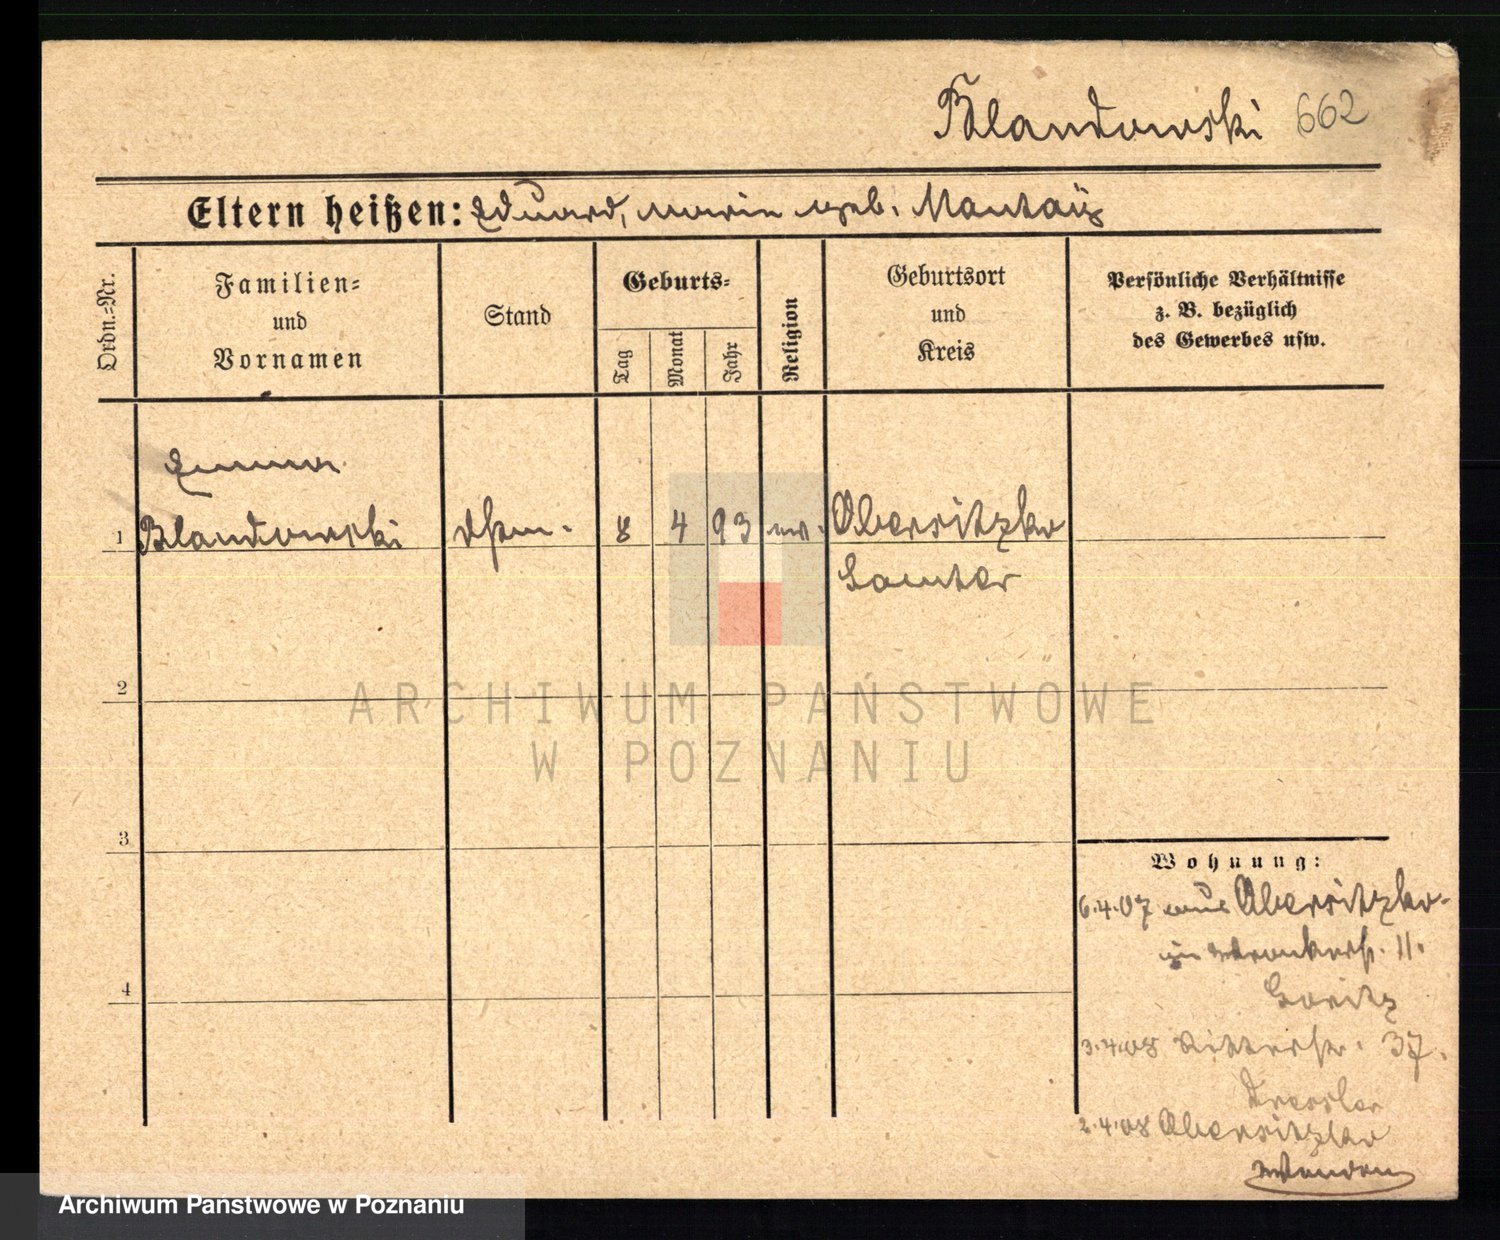 Blandowski 662
Eltern heißen: Eduard, Marie geb. Mantaÿ
Ordn.-Nr.
Familien-
und
Vornamen
Stand
Geburts-
Tag
Monat
Jahr
Religion
Geburtsort
und
Kreis
Persönliche Verhältnisse
z. B. bezüglich
des Gewerbes usw.
Emma
1 Blandowski 8 4 93 ev. Obersitzko
Samter
2
3
4
Wohnung:
6.4.07 aus Obersitzko
in Wronkerstr. 11.
Goritz
3.4.08 Ritterstr. 37.
Dressler
2.4.08 Obersitzko
Wenden
ARCHIWUM PAŃSTWOWE
W POZNANIU
Archiwum Państwowe w Poznaniu